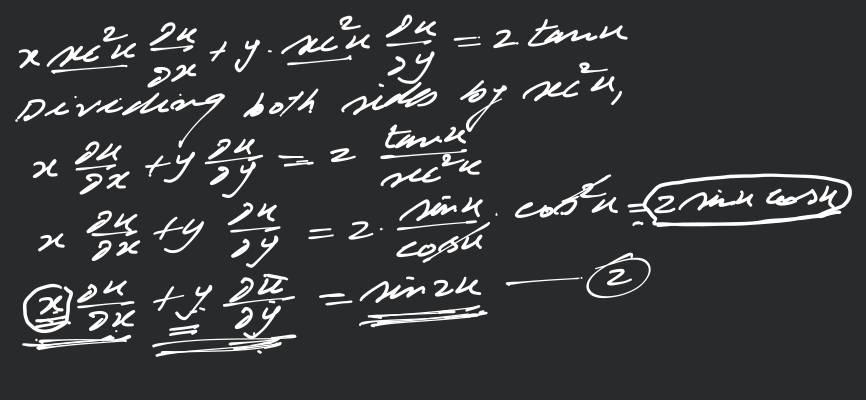 x sec²u ∂u/∂x + y · sec²u ∂u/∂y = 2 tanu
Dividing both sides by sec²u,
x ∂u/∂x + y ∂u/∂y = 2 tanu/sec²u
x ∂u/∂x + y ∂u/∂y = 2 · sinu/cosu · cos²u = 2 sinu cosu
x ∂u/∂x + y ∂u/∂y = sin2u — 2